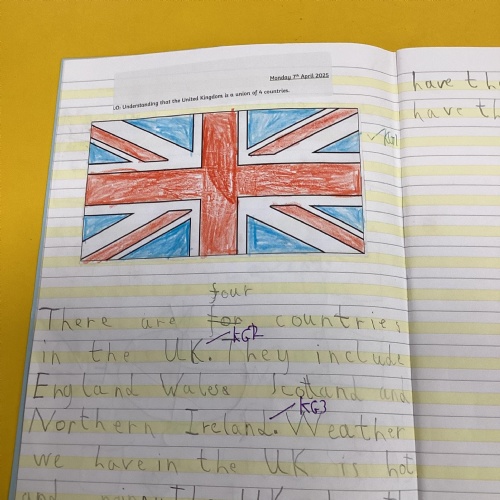 Monday 7th April 2025
LO: Understanding that the United Kingdom is a union of 4 countries.
have th
KG1
have th
four
There are for countries
KG2
in the UK. They include
England Wales Scotland and
KG3
Northern Ireland. Weather
we have in the UK is hot
and rainy. The UK